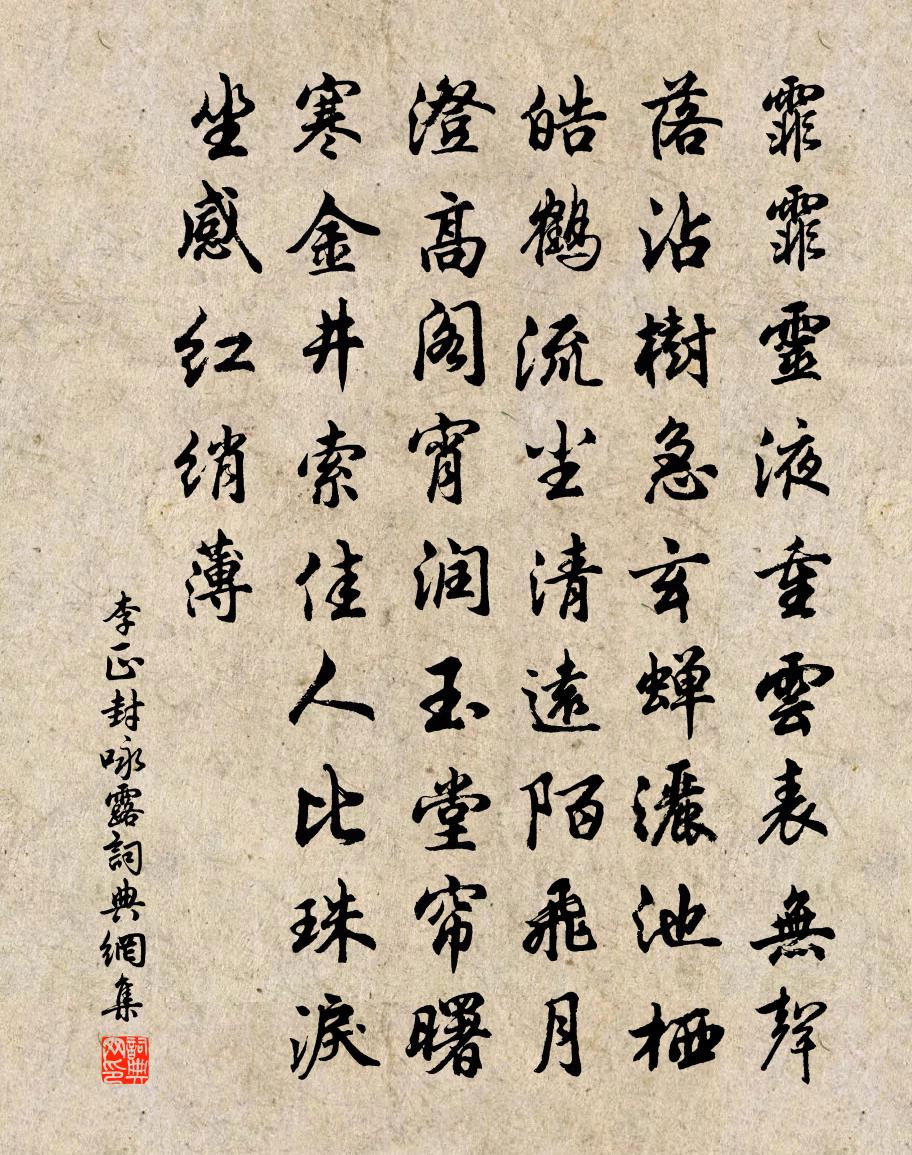 霏霏靈液重雲表無聲
落沾樹急玄蝉灑池栖
皓鶴流尘清遠陌飛月
澄高阁宵润玉堂帘曙
寒金井索佳人比珠淚
坐感红绡薄
李正封咏露詞典網集
詞典网印